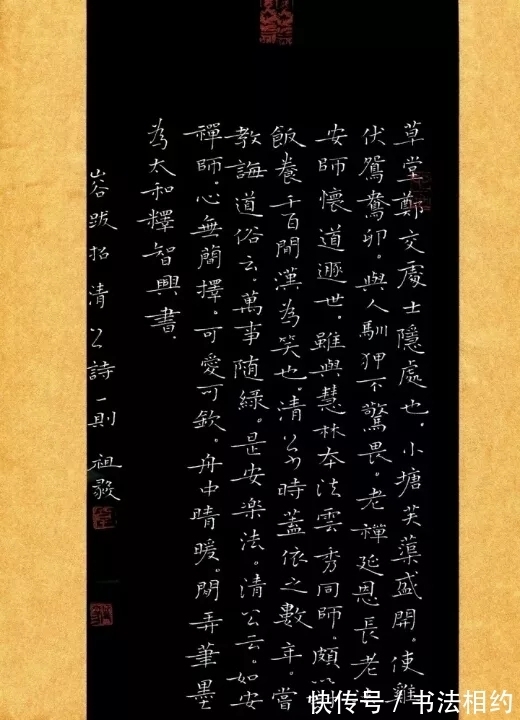 草堂鄭交處士隱處也。小塘芙蕖盛開。使雞
伏鴛鴦卵。與人馴狎不驚畏。老禪延恩長老
安師懷道遯世。雖與慧林本法雲秀同師。頗
飯養千百閒漢為笑也。清公少時蓋依之數年。嘗
教誨道俗云。萬事隨緣。是安樂法。清公云。如安
禪師。心無簡擇。可愛可欽。舟中晴暖。閒弄筆墨
為太和釋智興書。
山谷跋招清公詩一則 祖
快传号／书法相约